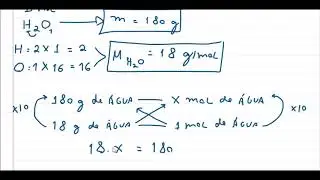 H₂O₁
m = 180 g
H: 2 x 1 = 2
O: 1 x 16 = 16
M H₂O = 18 g/mol
x10 180 g de ÁGUA x mol de ÁGUA x10
18 g de ÁGUA 1 mol de ÁGUA
18 . x = 180